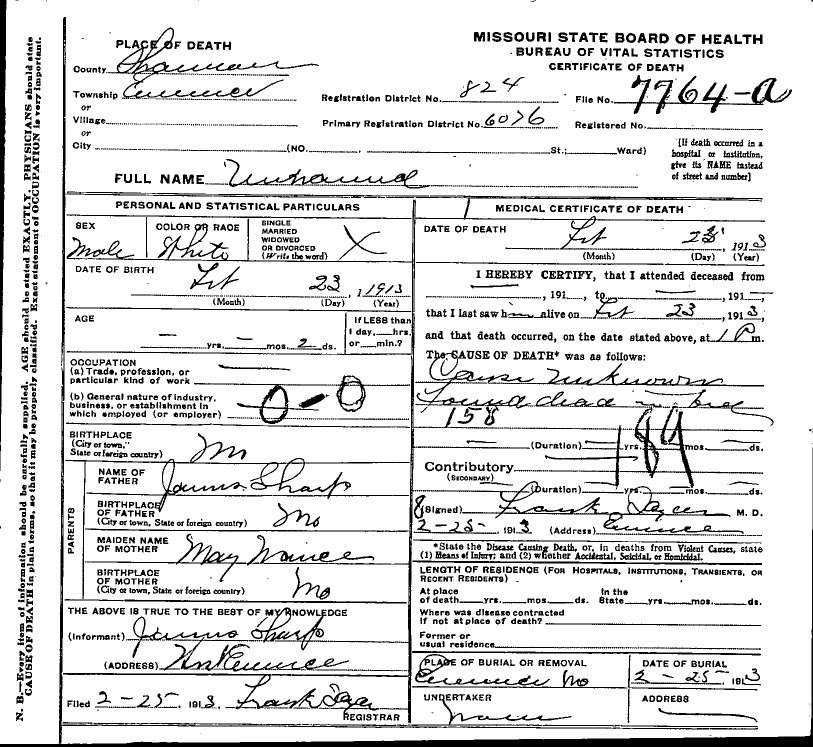 MISSOURI STATE BOARD OF HEALTH
BUREAU OF VITAL STATISTICS
CERTIFICATE OF DEATH
PLACE OF DEATH
County Shannon
Township Eminence
or
Village
or
City (NO. St.; Ward)
Registration District No. 824
File No. 7764-a
Primary Registration District No. 6076
Registered No.
[If death occurred in a
hospital or institution,
give its NAME instead
of street and number]
FULL NAME Unnamed
PERSONAL AND STATISTICAL PARTICULARS
SEX
Male
COLOR OR RACE
White
SINGLE
MARRIED
WIDOWED
OR DIVORCED
(Write the word)
X
DATE OF BIRTH
23, 1913
(Month) (Day) (Year)
AGE
— yrs. — mos. 2 ds.
If LESS than
1 day, hrs.
or min.?
OCCUPATION
(a) Trade, profession, or
particular kind of work
(b) General nature of industry,
business, or establishment in
which employed (or employer)
0-0
BIRTHPLACE
(City or town,
State or foreign country)
Mo
PARENTS
NAME OF
FATHER
James Sharp
BIRTHPLACE
OF FATHER
(City or town, State or foreign country)
Mo
MAIDEN NAME
OF MOTHER
May
BIRTHPLACE
OF MOTHER
(City or town, State or foreign country)
Mo
THE ABOVE IS TRUE TO THE BEST OF MY KNOWLEDGE
(Informant) James Sharp
(ADDRESS) Eminence
Filed 2-25 1913 Frank
REGISTRAR
MEDICAL CERTIFICATE OF DEATH
DATE OF DEATH
1913
(Month) (Day) (Year)
I HEREBY CERTIFY, that I attended deceased from
, 191 , to , 191 ,
that I last saw him alive on 23, 1913,
and that death occurred, on the date stated above, at 1 P m.
The CAUSE OF DEATH* was as follows:
Cause Unknown
Found dead in bed
158
189
(Duration) yrs. mos. ds.
Contributory
(SECONDARY)
(Duration) yrs. mos. ds.
8 (Signed) Frank M. D.
2-25- 1913 (Address) Eminence
*State the Disease Causing Death, or, in deaths from Violent Causes, state
(1) Means of Injury; and (2) whether Accidental, Suicidal, or Homicidal.
LENGTH OF RESIDENCE (FOR HOSPITALS, INSTITUTIONS, TRANSIENTS, OR
RECENT RESIDENTS)
At place
of death yrs. mos. ds.
In the
State yrs. mos. ds.
Where was disease contracted
if not at place of death?
Former or
usual residence
PLACE OF BURIAL OR REMOVAL
Eminence Mo
DATE OF BURIAL
2-25- 1913
UNDERTAKER
None
ADDRESS
N. B.—Every item of information should be carefully supplied. AGE should be stated EXACTLY. PHYSICIANS should state
CAUSE OF DEATH in plain terms, so that it may be properly classified. Exact statement of OCCUPATION is very important.